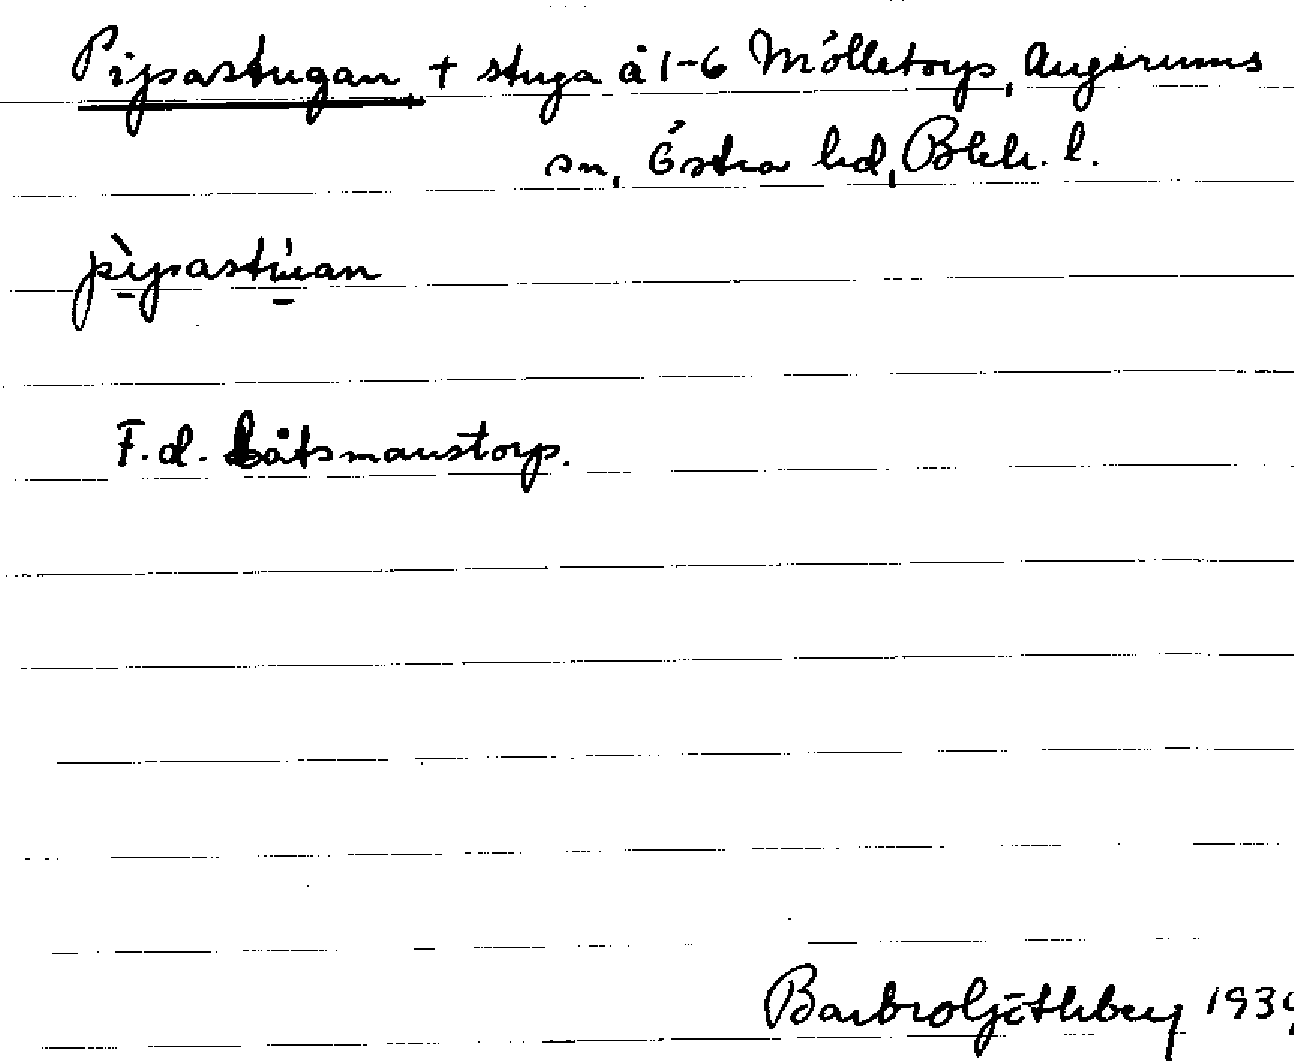 Pipastugan + stuga å 1-6 Mölletorp, Augerums
sn, Östra hd, Blek. l.
pìpastúan
F.d. båtsmanstorp.
Barbro 1939